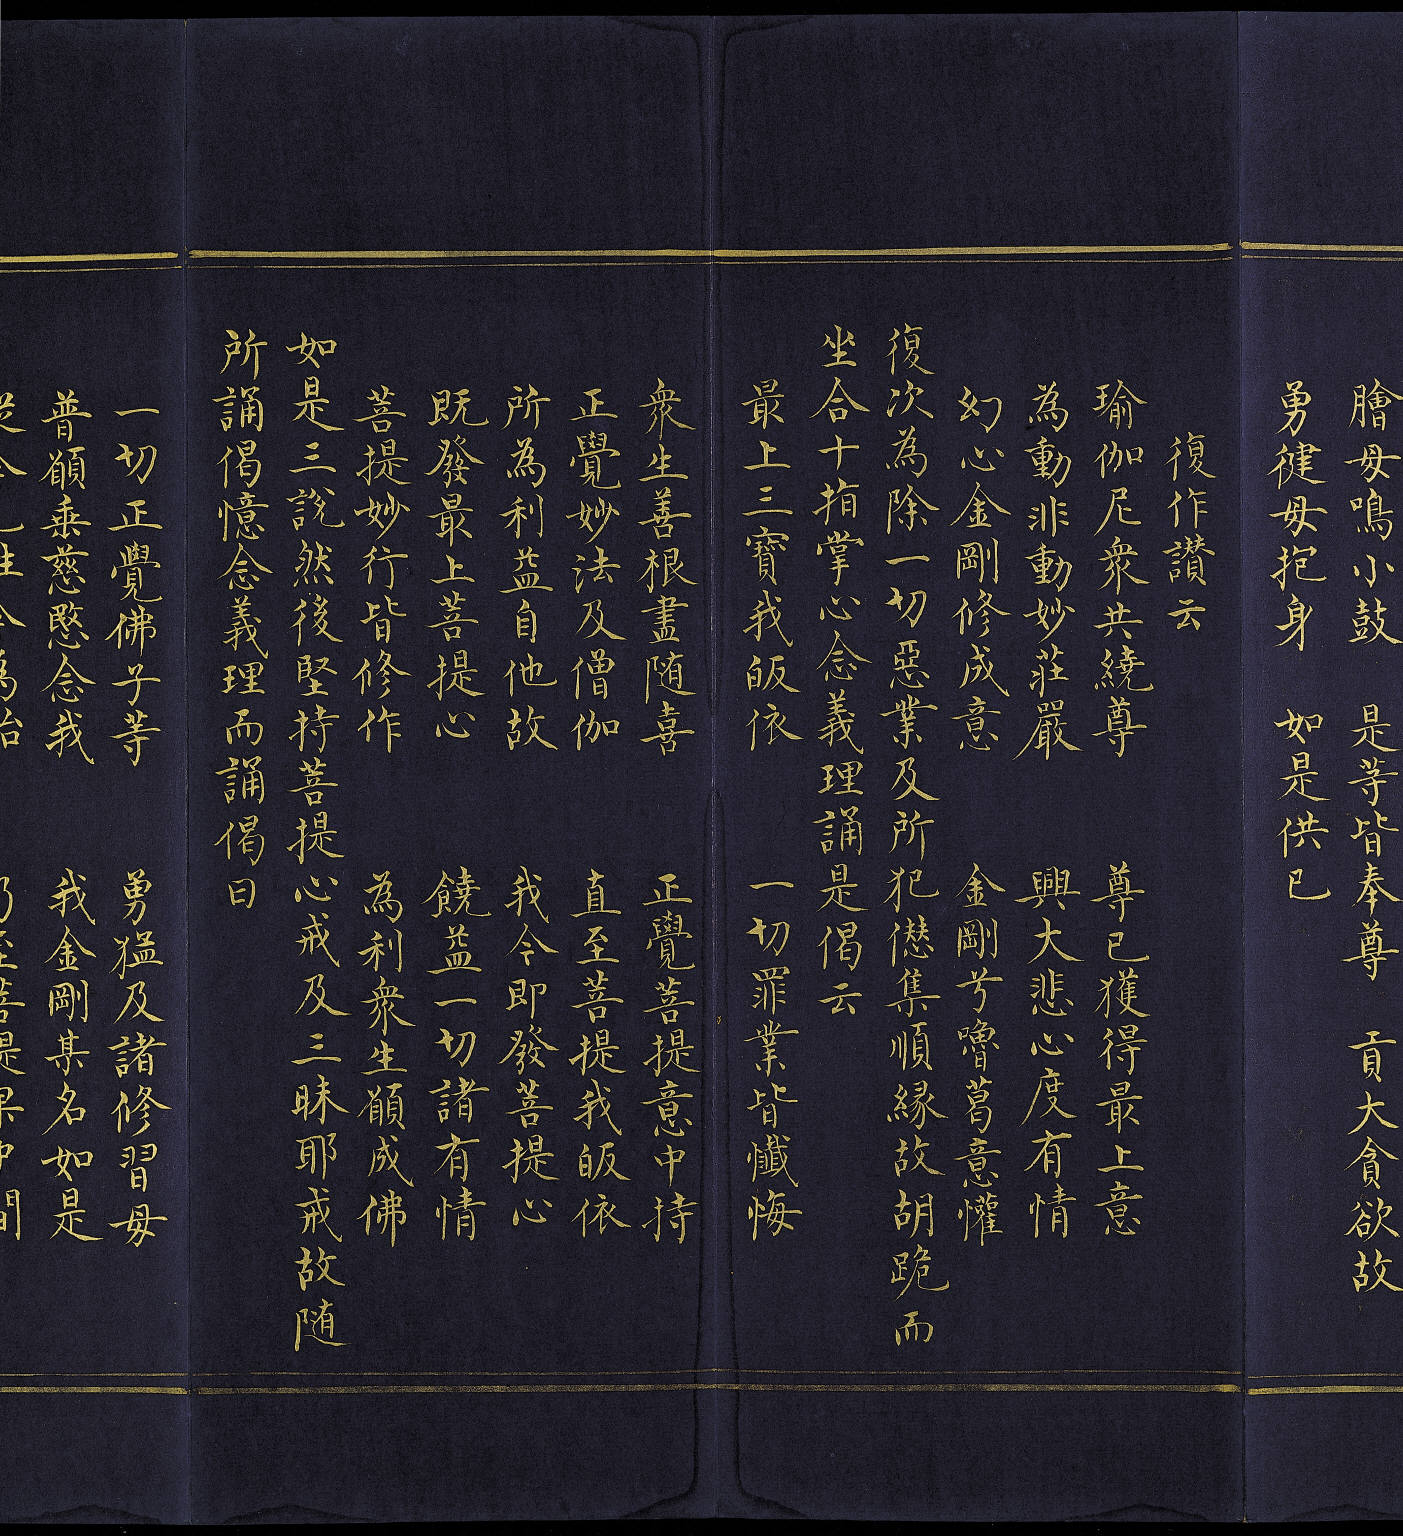 膾母鳴小鼓　是等皆奉尊　貢大貪欲故
勇健母抱身　如是供已
復作讃云
瑜伽尼衆共繞尊　尊已獲得最上意
為動非動妙莊嚴　興大悲心度有情
幻心金剛修成意　金剛兮嚕葛意懽
復次為除一切惡業及所犯僁集順緣故胡跪而
坐合十指掌心念義理誦是偈云
最上三寶我皈依　一切罪業皆懺悔
衆生善根盡随喜　正覺菩提意中持
正覺妙法及僧伽　直至菩提我皈依
所為利益自他故　我今即發菩提心
既發最上菩提心　饒益一切諸有情
菩提妙行皆修作　為利衆生願成佛
如是三說然後堅持菩提心戒及三昧耶戒故随
所誦偈憶念義理而誦偈曰
一切正覺佛子等　勇猛及諸修習母
普願垂慈愍念我　我金剛某名如是